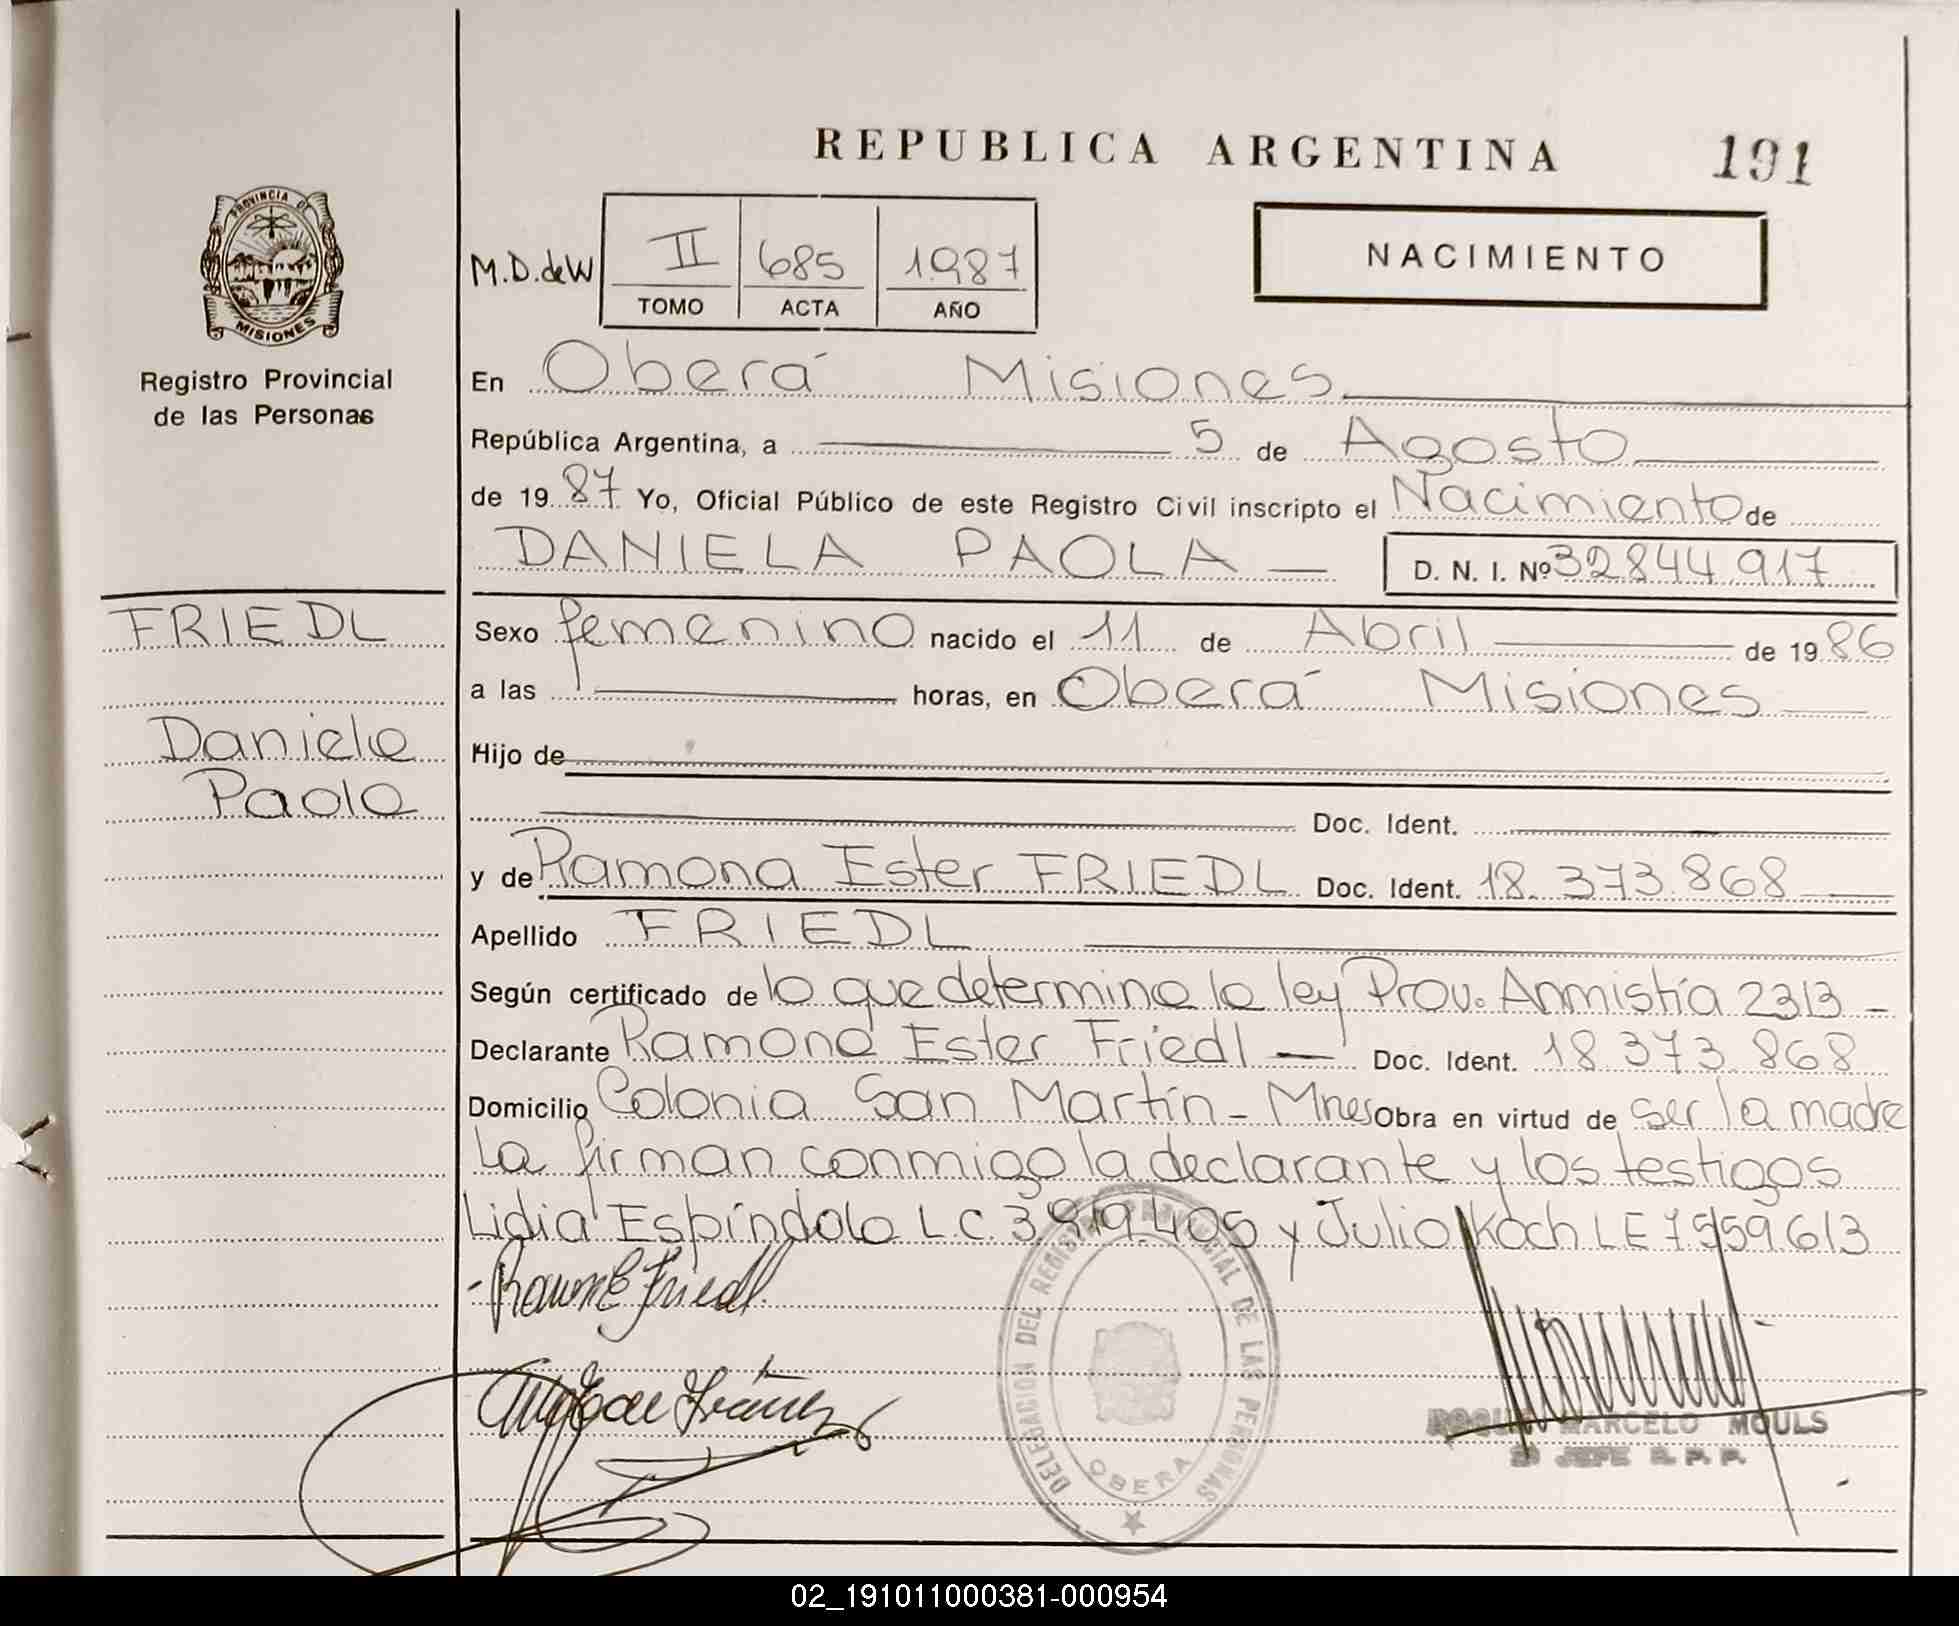 REPUBLICA ARGENTINA 191
PROVINCIA DE
MISIONES
Registro Provincial
de las Personas
M.D. de W
II 685 1987
TOMO ACTA AÑO
NACIMIENTO
En Oberá Misiones
República Argentina, a 5 de Agosto
de 1987 Yo, Oficial Público de este Registro Civil inscripto el Nacimiento de
DANIELA PAOLA D. N. I. Nº 32844.917
FRIEDL
Daniela
Paola
Sexo femenino nacido el 11 de Abril de 1986
a las horas, en Oberá Misiones
Hijo de
Doc. Ident.
y de Ramona Ester FRIEDL Doc. Ident. 18.373.868
Apellido FRIEDL
Según certificado de lo que determina la ley Prov. Anmistía 2313
Declarante Ramona Ester Friedl Doc. Ident. 18.373.868
Domicilio Colonia San Martín - Mnes Obra en virtud de ser la madre
La firman conmigo la declarante y los testigos
Lidia Espíndola L.C. 3.819.405 y Julio Koch LE 7559613
Friedl
DELEGACION DEL REGISTRO PROVINCIAL DE LAS PERSONAS
OBERA
MARCELO MOULS
JEFE R. P. P.
02_191011000381-000954